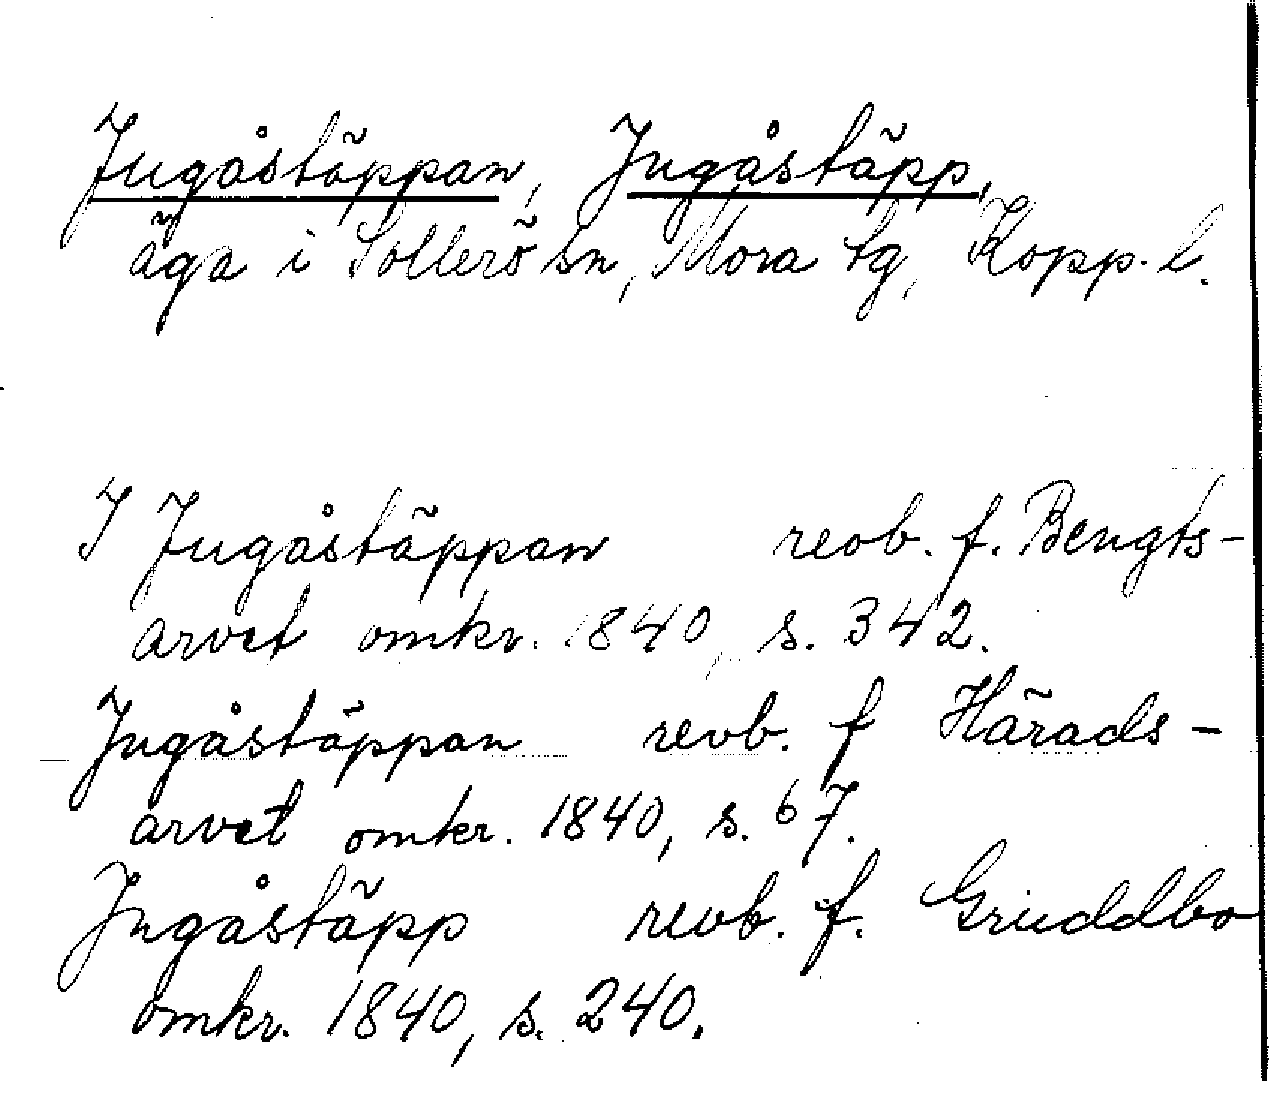 Jugåstäppan, Jugåstäpp,
äga i Sollerö sn, Mora tg, Kopp. l.
I Jugåstäppan revb. f. Bengts-
arvet omkr. 1840, s. 342.
Jugåstäppan revb. f Härads-
arvet omkr. 1840, s. 67.
Jugåstäpp revb. f. Gruddbo
omkr. 1840, s. 240.